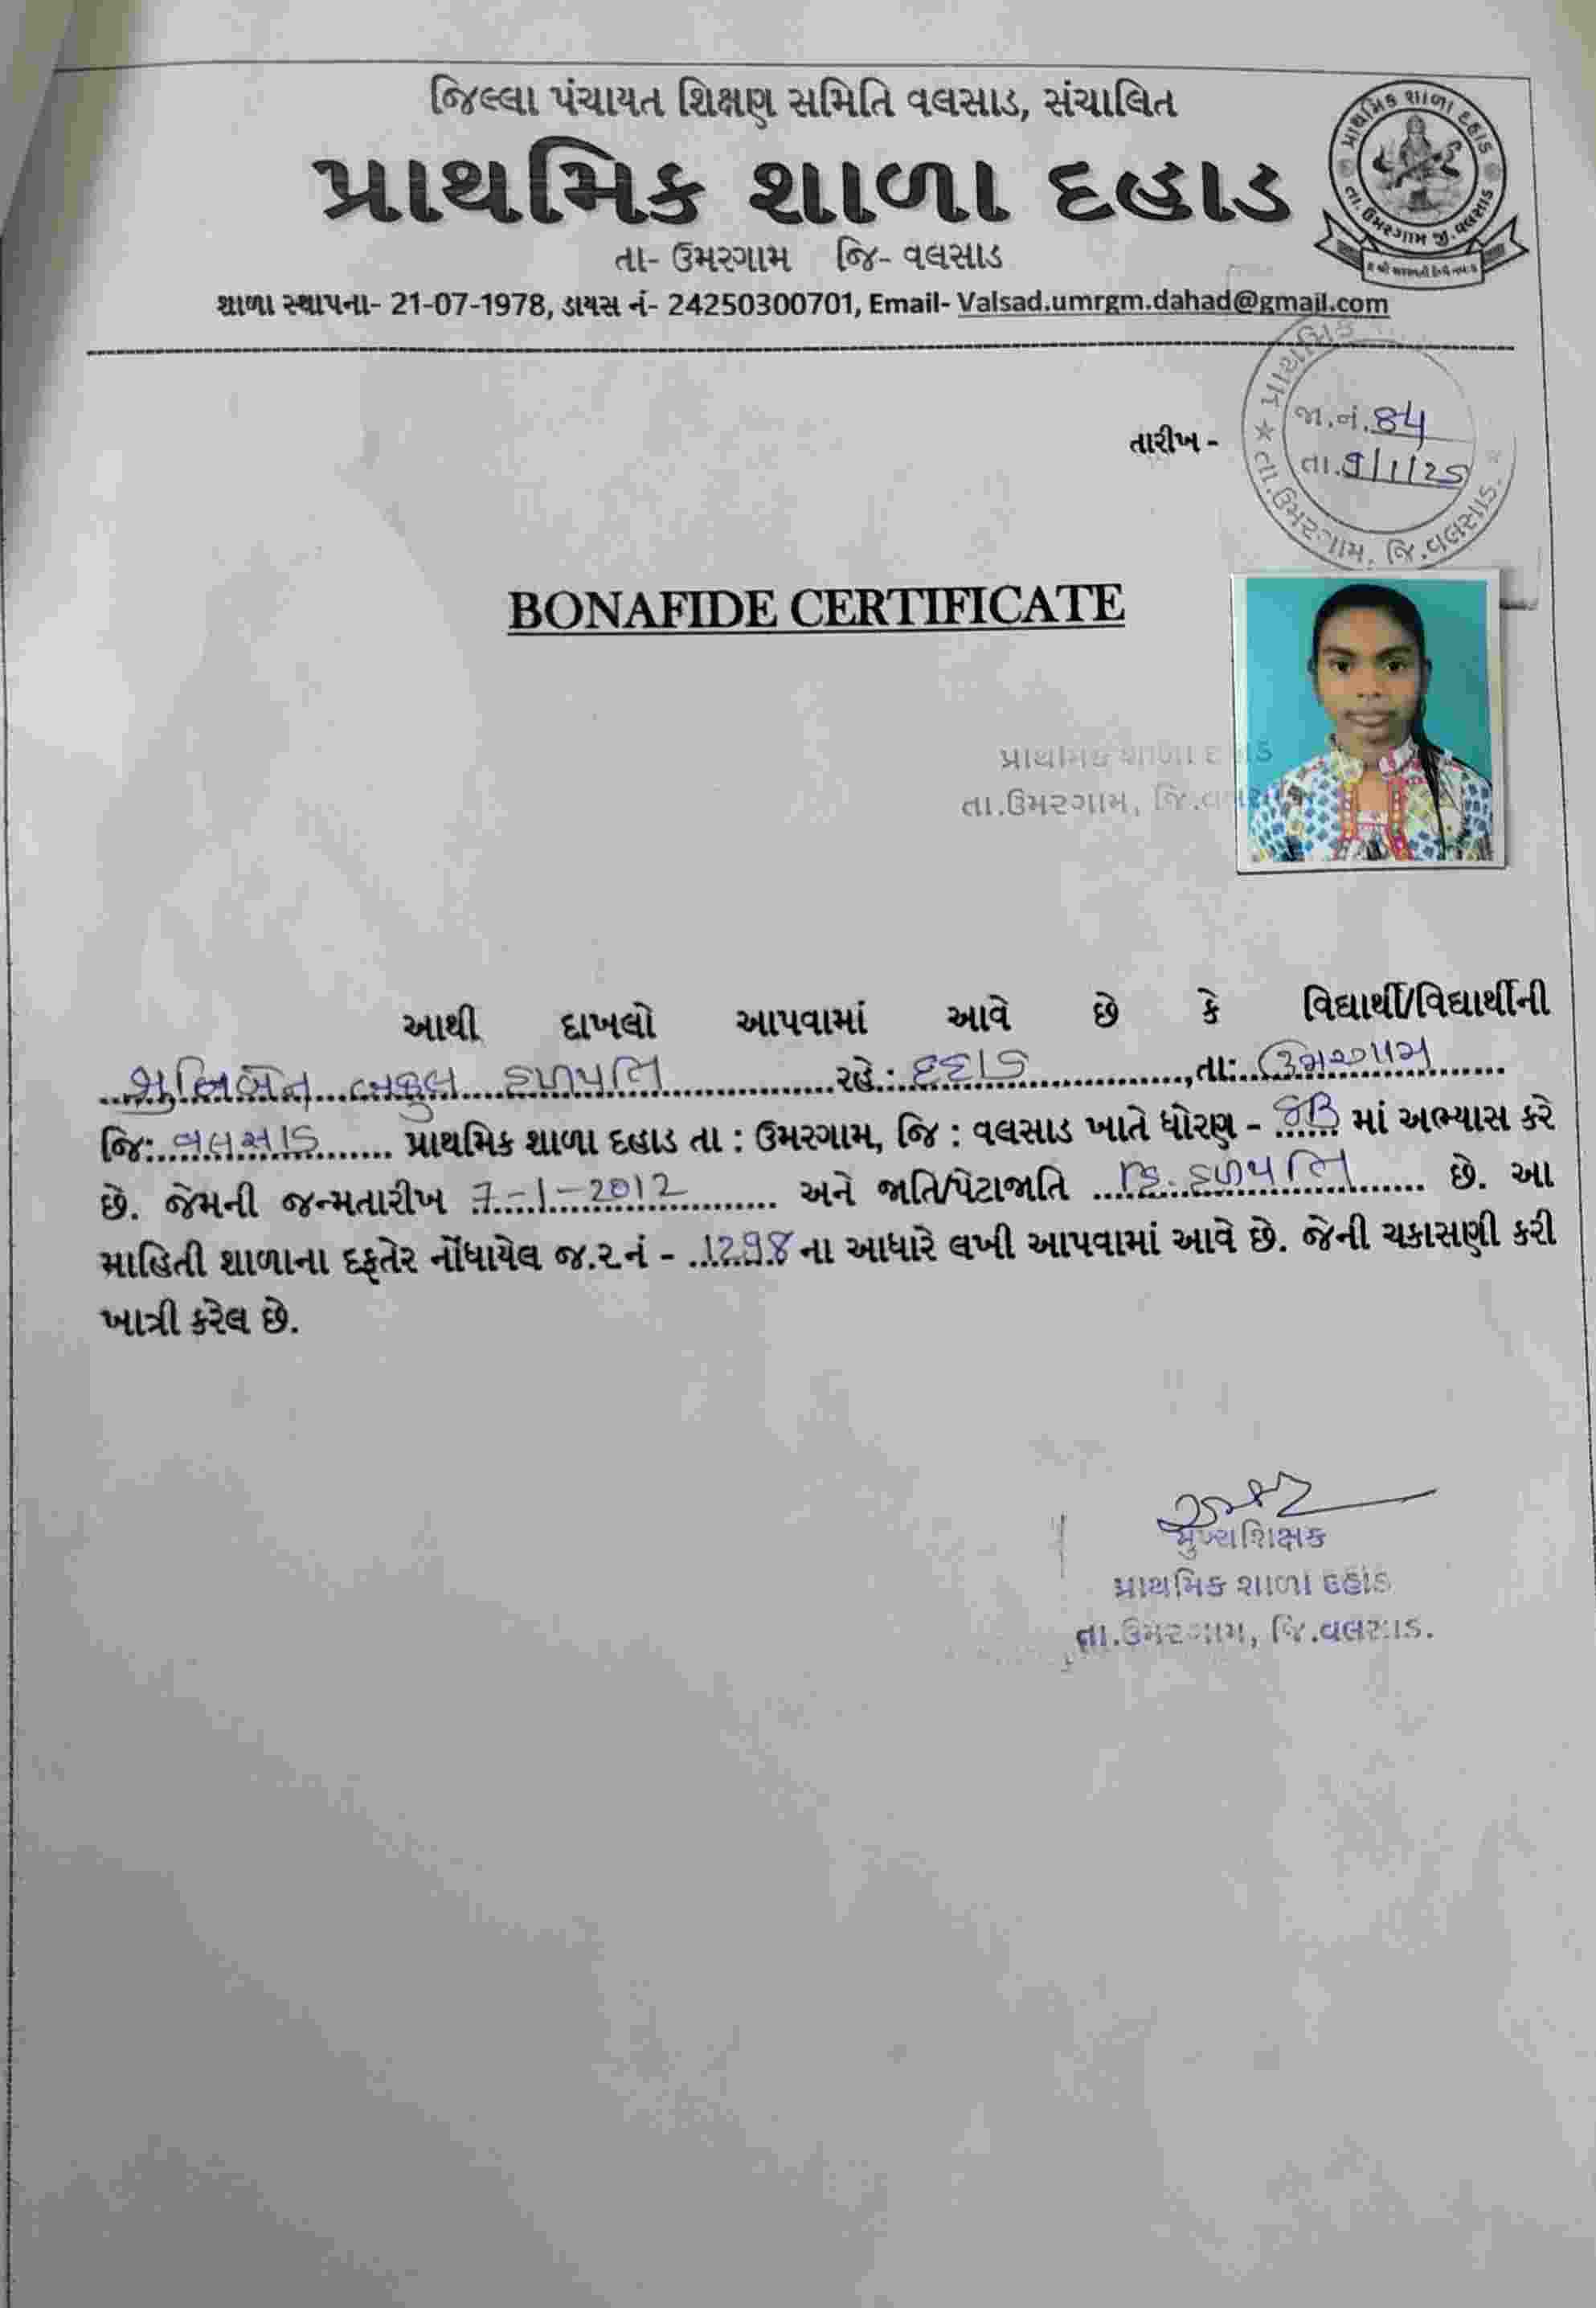 જિલ્લા પંચાયત શિક્ષણ સમિતિ વલસાડ, સંચાલિત
પ્રાથમિક શાળા દહાડ
તા- ઉમરગામ જિ- વલસાડ
શાળા સ્થાપના- 21-07-1978, ડાયસ નં- 24250300701, Email- Valsad.umrgm.dahad@gmail.com
પ્રાથમિક શાળા દહાડ
તા. ઉમરગામ જી. વલસાડ
તારીખ -
જા.નં. 84
તા. 9/1/25
તા.ઉમરગામ, જિ.વલસાડ.
BONAFIDE CERTIFICATE
પ્રાથમિક શાળા દહાડ
તા.ઉમરગામ, જિ.વલસા
આથી દાખલો આપવામાં આવે છે કે વિદ્યાર્થી/વિદ્યાર્થીની
બકુલ હળપતિ રહે: દહાડ, તા: ઉમરગામ
જિ: વલસાડ પ્રાથમિક શાળા દહાડ તા : ઉમરગામ, જિ : વલસાડ ખાતે ધોરણ - માં અભ્યાસ કરે
છે. જેમની જન્મતારીખ 7-1-2012 અને જાતિ/પેટાજાતિ હિ. હળપતિ છે. આ
માહિતી શાળાના દફતેર નોંધાયેલ જ.ર.નં - ના આધારે લખી આપવામાં આવે છે. જેની ચકાસણી કરી
ખાત્રી કરેલ છે.
મુખ્યશિક્ષક
પ્રાથમિક શાળા દહાડ
તા.ઉમરગામ, જિ.વલસાડ.